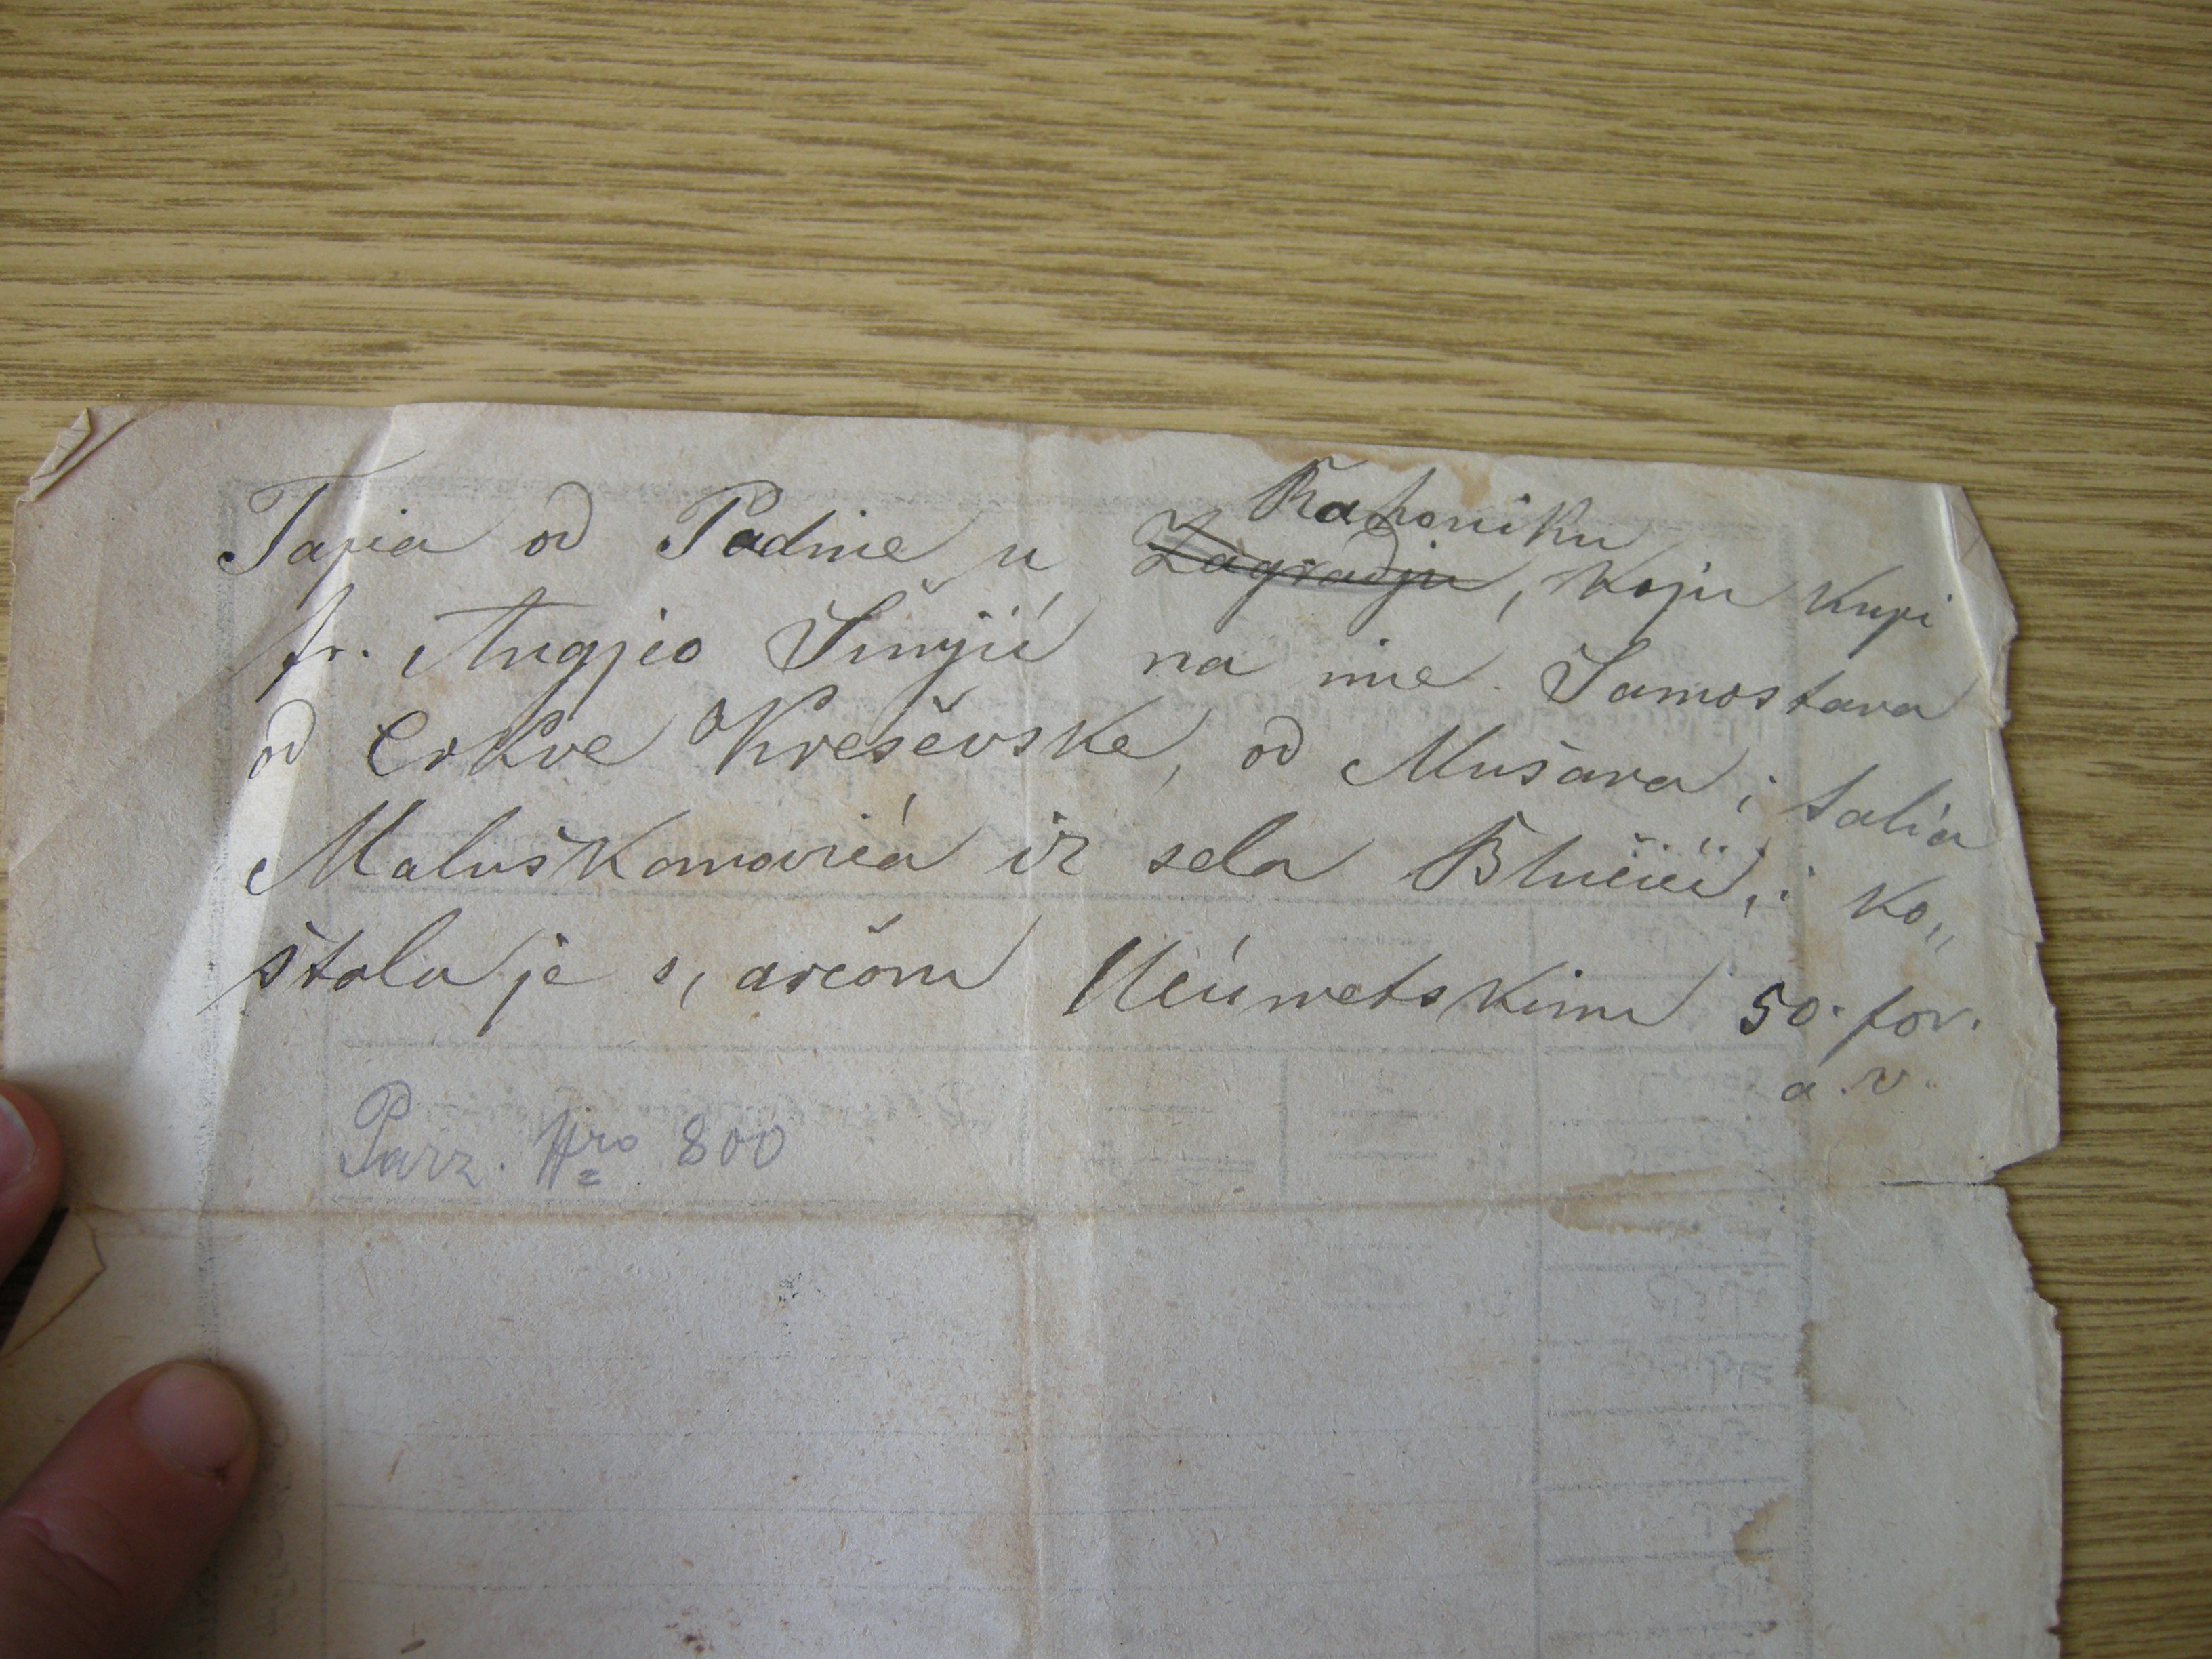 Tapia od Padine u Zagradju Rakoniku, koju kupi
fr. Angjeo Šunjić na ime Samostana
od Crkve Kreševske, od Mušana i Salia
Maluškanovića iz sela Blučići, i ko„
štala je s, arčom Ućumetskim 50. for.
a. v.
Parz. Nro 800